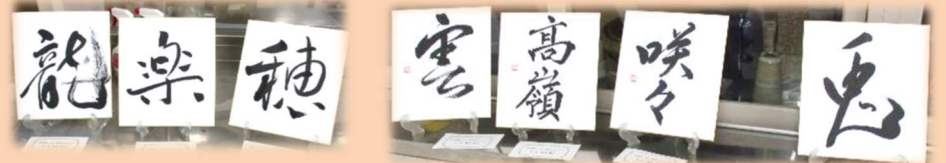 龍
楽
穂
雲
高嶺
咲々
兎